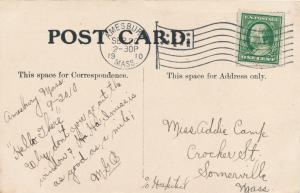 AMESBURY
SEP
2-30P
19 10
MASS.
POST CARD.
U.S. POSTAGE
ONE CENT
This space for Correspondence.
This space for Address only.
Amesbury Mass
9-20/10
"Hello There"
Why don't you go out the
window? Ha-Ha Ina miss is
as good as a mile;
Miss Addie Camp
Crocker St.
Somerville
Mass.
to Hospital